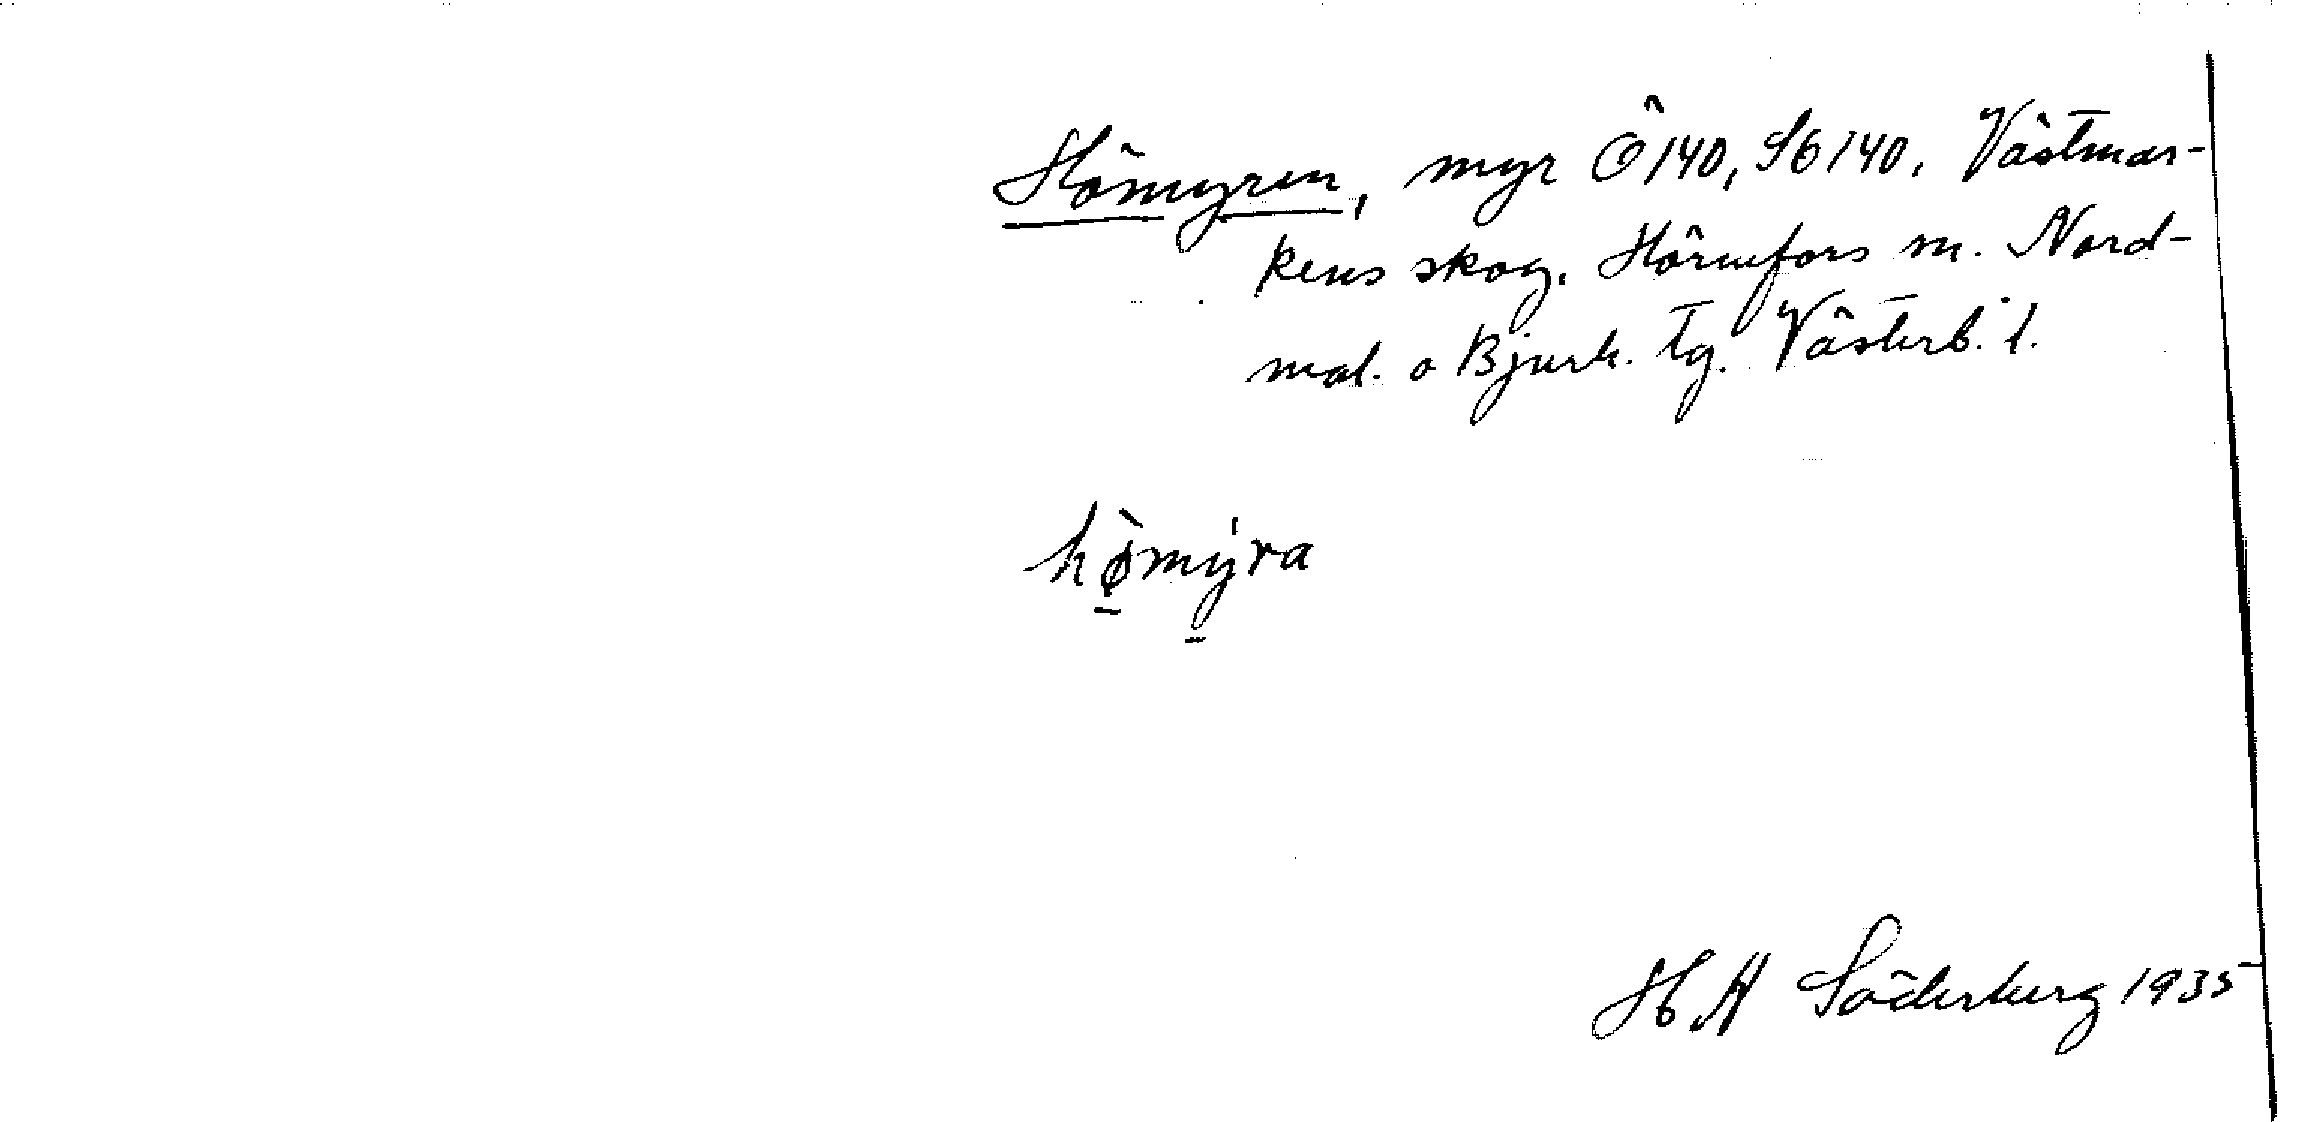 Hömyren, myr Ö 140, H 140, Västmar-
kens skog. Hörnefors m. Nord-
mal. o Bjurh. tg. Västerb. l.
hø̀mýra
H A Söderberg 1935